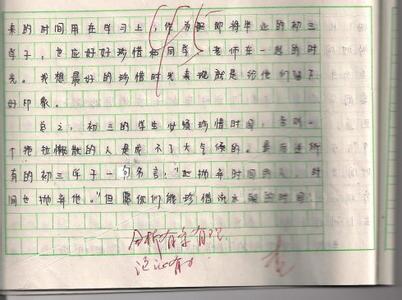 来的时间用在学习上，作为即将毕业的初三
学子，也应好好珍惜和同学、老师在一起的时
光。我想最好的珍惜时光表现就是给他们留下
好印象。
总之，初三的学生必须珍惜时间，
个拖拉懒散的人是成不了大气候的。最后送所
有的初三学子一句名言："抛弃时间的人，时
间也抛弃他。"但愿你们能珍惜流水般的时间！
分析有条有理
论证有力